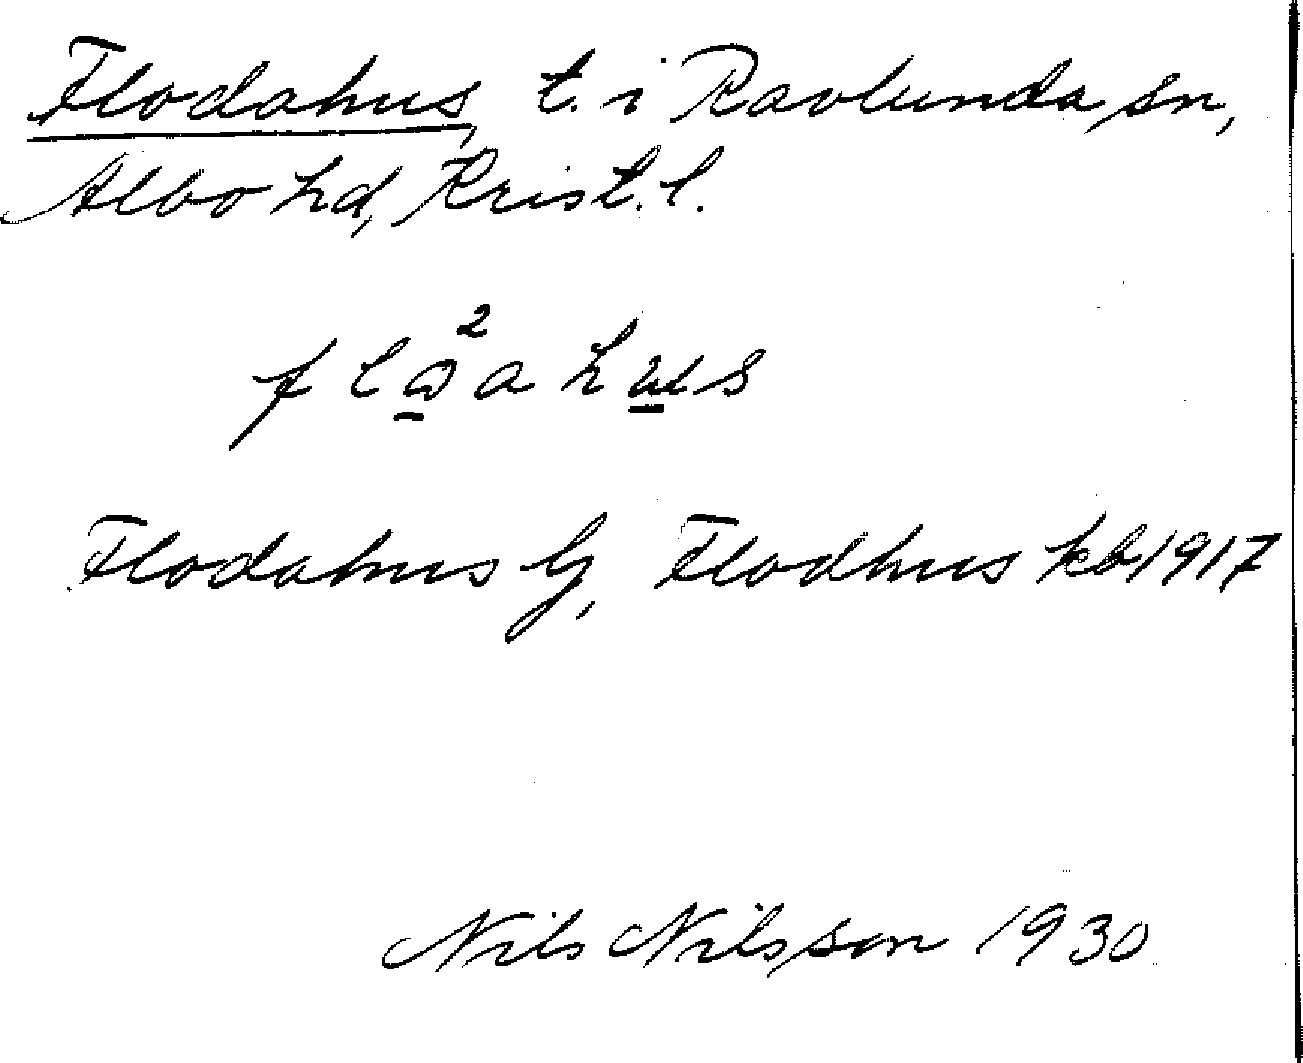 Flodahus, t. i Ravlunda sn,
Albo hd, Krist. l.
Flodahus G, Flodhus kb 1917
Nils Nilsson 1930